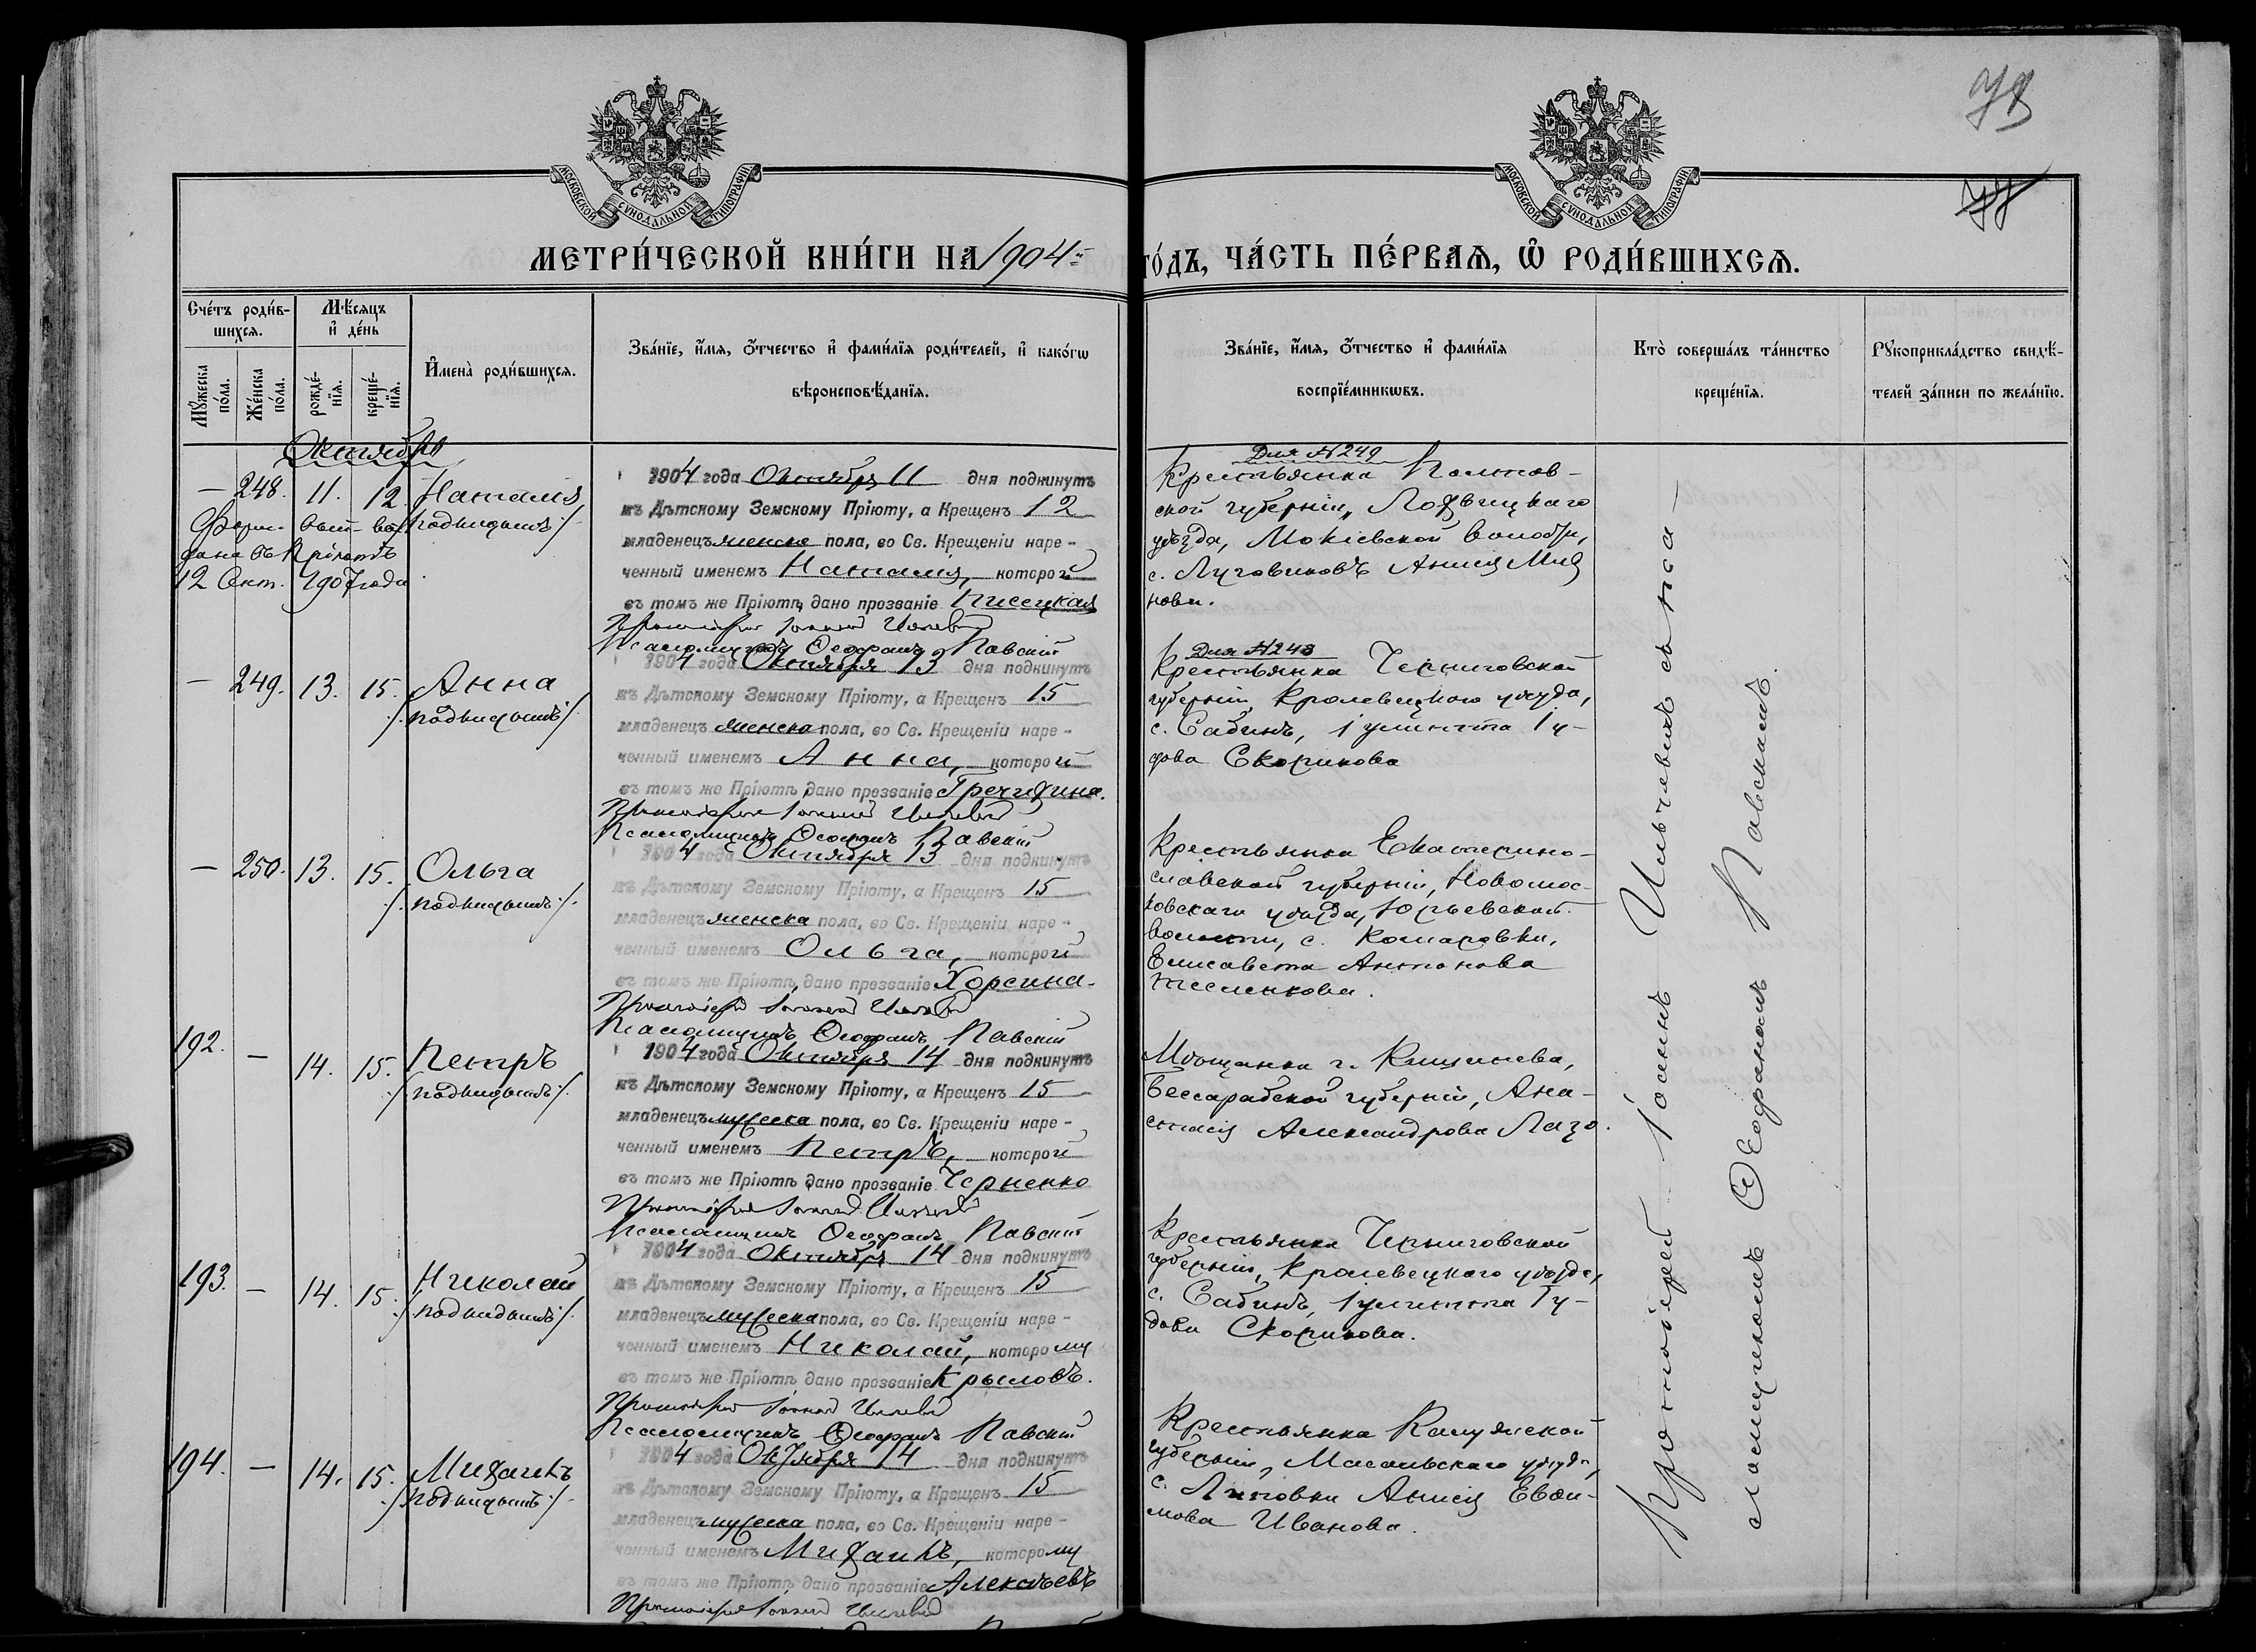 МОСКОВСКОЙ СУНОДАЛЬНОЙ ТИПОГРАФІИ
МОСКОВСКОЙ СУНОДАЛЬНОЙ ТИПОГРАФІИ
МЕТРИ́ЧЕСКОЙ КНИ́ГИ НА 1904
ГО́ДЪ, ЧА́СТЬ ПЕ́РВАѦ, Ѡ҆ РОДИ́ВШИХСѦ.
Сче́тъ роди́в-
шихсѧ.
Мꙋ́жеска по́ла.
Же́нска по́ла.
Мѣ́сѧцъ
и҆ де́нь
рожде́-
нїѧ.
креще́-
нїѧ.
И҆мена̀ роди́вшихсѧ.
Зва́нїе, и҆́мѧ, ѻ҆́тчество и҆ фами́лїѧ роди́телей, и҆ како́гѡ
вѣроисповѣ́данїѧ.
Зва́нїе, и҆́мѧ, ѻ҆́тчество и҆ фами́лїѧ
воспрїе́мникѡвъ.
Кто̀ соверша́лъ та́инство
креще́нїѧ.
Рꙋкоприкла́дство свидѣ́-
телей за́писи по жела́нїю.
Октябрь
— 248. 11. 12. Наталія
подкидышъ
дана въ Пріютъ
12 Окт. 1907 года
1904 года Октября 11 дня подкинутъ
къ Дѣтскому Земскому Пріюту, а Крещенъ 12
младенецъ женска пола, во Св. Крещеніи наре-
ченный именемъ Наталія, которой
въ томъ же Пріютѣ дано прозваніе Кисецкая
Протоіерей Іоаннъ
Псаломщикъ Ѳеофанъ Павскій
Для №249
Крестьянка Полтав-
ской губерніи, Лохвицкаго
уѣзда, Мокіевской волости,
с. Луговиковъ Анисія Ми
нова.
— 249. 13. 15. Анна
подкидышъ
1904 года Октября 13 дня подкинутъ
къ Дѣтскому Земскому Пріюту, а Крещенъ 15
младенецъ женска пола, во Св. Крещеніи наре-
ченный именемъ Анна, которой
въ томъ же Пріютѣ дано прозваніе Гречихина.
Протоіерей Іоаннъ
Псаломщикъ Ѳеофанъ Павскій
Для №248
Крестьянка Черниговской
губерніи, Кролевецкаго уѣзда,
с. Сабинъ, Іулитта Іу-
дова Скорикова
— 250. 13. 15. Ольга
подкидышъ
1904 года Октября 13 дня подкинутъ
къ Дѣтскому Земскому Пріюту, а Крещенъ 15
младенецъ женска пола, во Св. Крещеніи наре-
ченный именемъ Ольга, которой
въ томъ же Пріютѣ дано прозваніе Хорсина.
Протоіерей Іоаннъ
Псаломщикъ Ѳеофанъ Павскій
Крестьянка Екатерино-
славской губерніи, Новомос-
ковскаго уѣзда, Юрьевской
волости, с. Комаровки,
Елисавета Антонова
Тесленкова.
192. — 14. 15. Петръ
подкидышъ
1904 года Октября 14 дня подкинутъ
къ Дѣтскому Земскому Пріюту, а Крещенъ 15
младенецъ мужеска пола, во Св. Крещеніи наре-
ченный именемъ Петръ, которой
въ томъ же Пріютѣ дано прозваніе Черненко
Протоіерей Іоаннъ
Псаломщикъ Ѳеофанъ Павскій
Мѣщанка г. Кишинева,
Бессарабской губерніи, Ана-
стасія Александрова Лазо.
193. — 14. 15. Николай
подкидышъ
1904 года Октября 14 дня подкинутъ
къ Дѣтскому Земскому Пріюту, а Крещенъ 15
младенецъ мужеска пола, во Св. Крещеніи наре-
ченный именемъ Николай, которому
въ томъ же Пріютѣ дано прозваніе Крыловъ.
Протоіерей Іоаннъ
Псаломщикъ Ѳеофанъ Павскій
Крестьянка Черниговской
губерніи, Кролевецкаго уѣзда,
с. Сабинъ, Іулитта Іу-
дова Скорикова.
194. — 14. 15. Михаилъ
подкидышъ
1904 года Октября 14 дня подкинутъ
къ Дѣтскому Земскому Пріюту, а Крещенъ 15
младенецъ мужеска пола, во Св. Крещеніи наре-
ченный именемъ Михаилъ, которому
въ томъ же Пріютѣ дано прозваніе Алексѣевъ
Протоіерей Іоаннъ
Крестьянка Калужской
губерніи, Масальскаго уѣзда,
с. Липовки Анисія Евѳи-
мова Иванова.
Протоіерей Іоаннъ съ пса-
ломщикомъ Ѳеофаномъ Павскимъ.